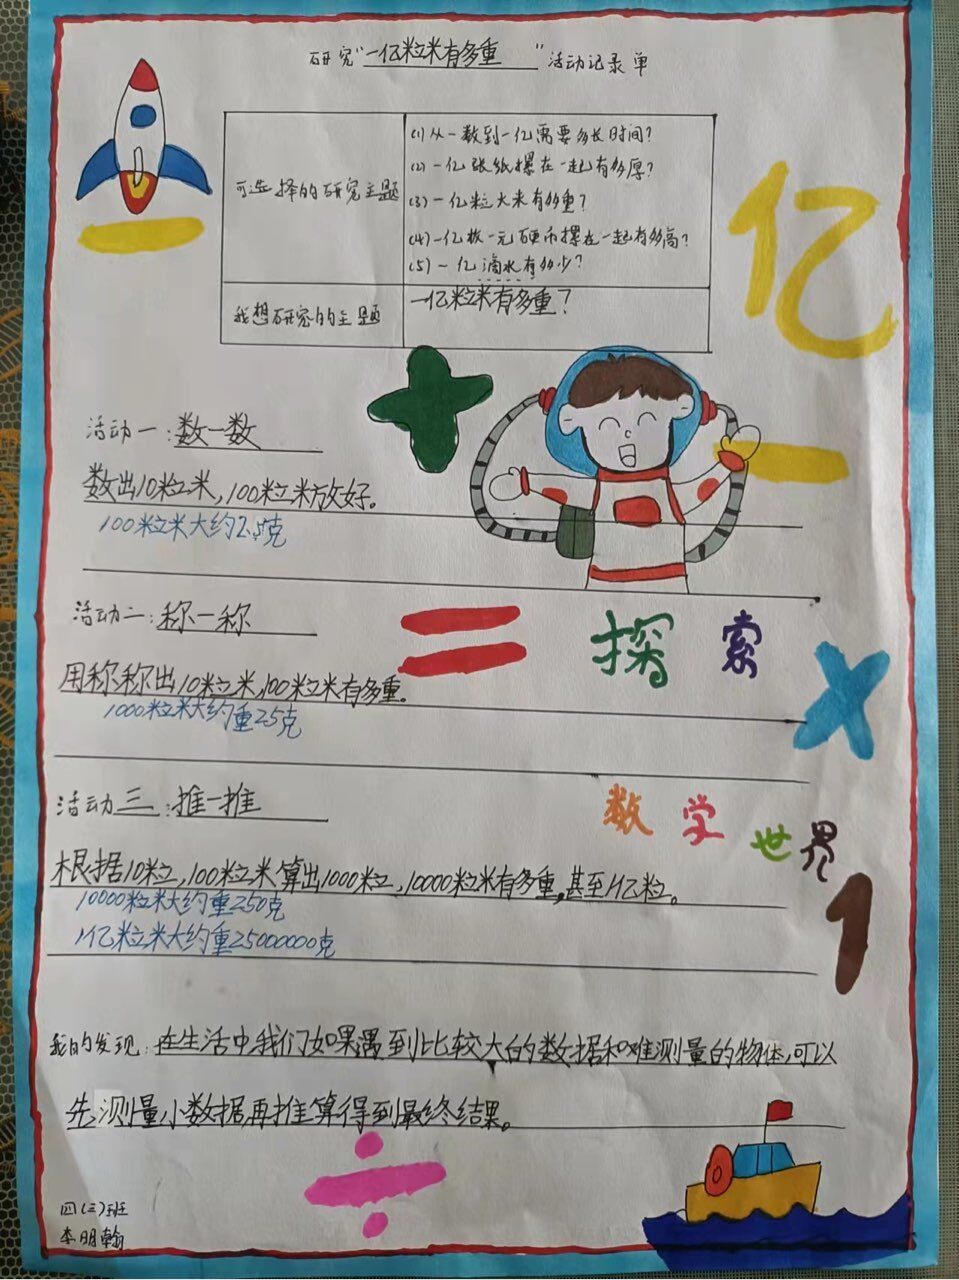 研究"一亿粒米有多重"活动记录单
可选择的研究主题
(1)从一数到一亿需要多长时间?
(2)一亿张纸摞在一起有多厚?
(3)一亿粒大米有多重?
(4)一亿枚一元硬币摞在一起有多高?
(5)一亿滴水有多少?
我想研究的主题
一亿粒米有多重?
亿
活动一:数一数
数出10粒米,100粒米放好。
100粒米大约2.5克
活动二:称一称
用称称出10粒米,100粒米有多重。
1000粒米大约重25克
探索
数学世界
活动三:推一推
根据10粒,100粒米算出1000粒,10000粒米有多重,甚至1亿粒。
10000粒米大约重250克
1亿粒米大约重25000000克
1
我的发现:在生活中我们如果遇到比较大的数据和难测量的物体,可以
先测量小数据再推算得到最终结果。
四(三)班
李明翰